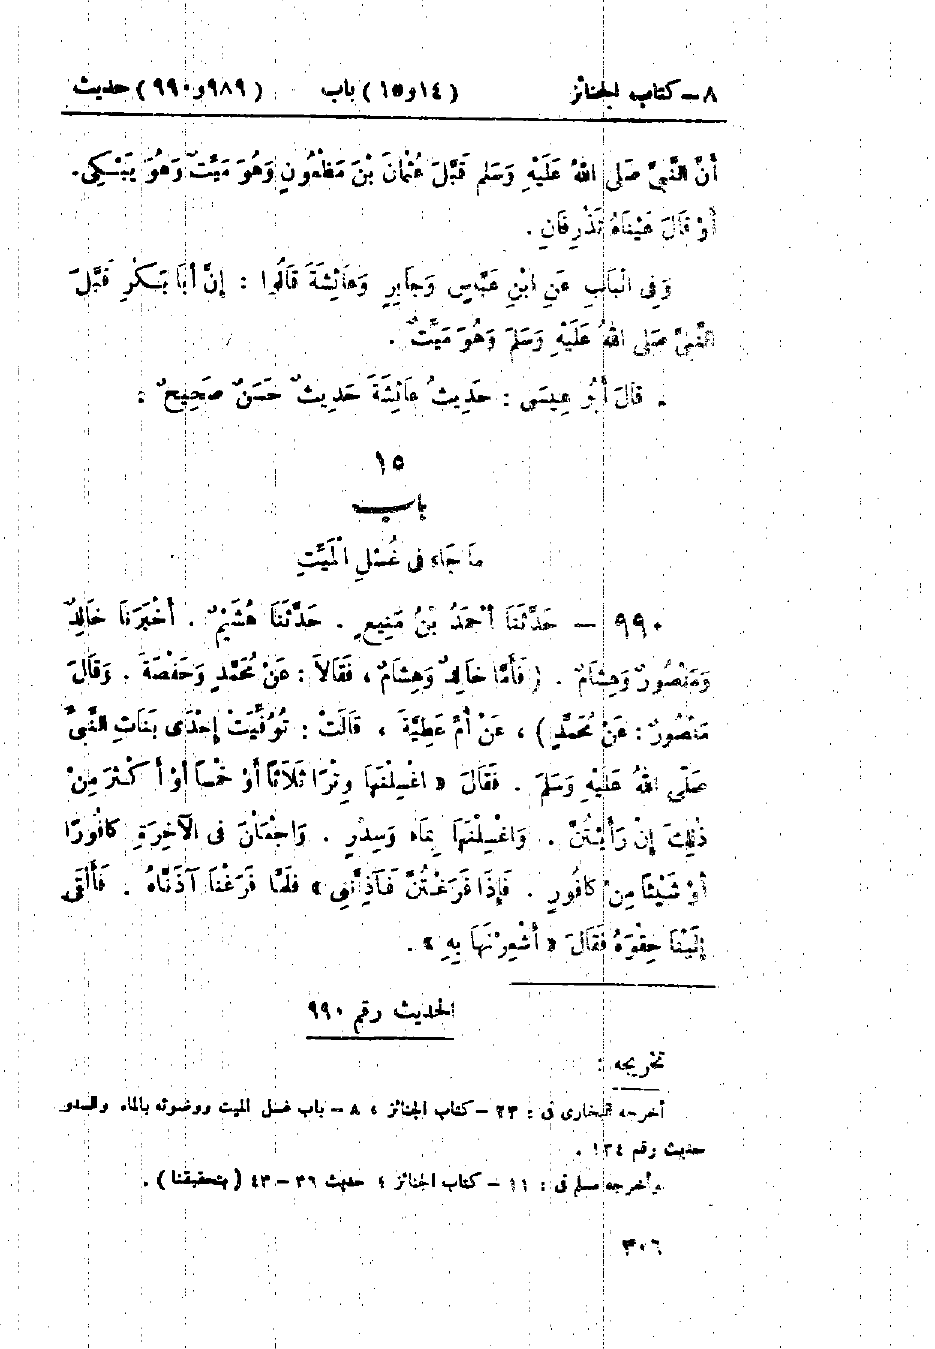 ٨ – كتاب الجنائز (١٤ و ١٥) باب (٩٨٩ و ٩٩٠) حديث
أَنَّ النَّبِىَّ صَلى اللهُ عَلَيْهِ وَسَلم قَبَّلَ عُثْمَانَ بْنَ مَظْعُونٍ وَهُوَ مَيِّتٌ وَهُوَ يَبْكِى.
أَوْ قَالَ عَيْنَاهُ تَذْرِفَانِ .
وَفِى الْبَابِ عَنِ ابْنِ عَبَّاسٍ وَجَابِرٍ وَعَائِشَةَ قَالُوا : إِنَّ أَبَا بَكْرٍ قَبَّلَ
النَّبِىَّ صَلى اللهُ عَلَيْهِ وَسَلمَ وَهُوَ مَيِّتٌ .
. قَالَ أَبُو عِيسَى : حَدِيثُ عَائِشَةَ حَدِيثٌ حَسَنٌ صَحِيحٌ :
١٥
باب
مَا جَاءَ فى غُسْلِ الْمَيِّتِ
٩٩٠ – حَدَّثَنَا أَحْمَدُ بْنُ مَنِيعٍ . حَدَّثَنَا هُشَيْمٌ . أَخْبَرَنَا خَالِدٌ
وَمَنْصُورٌ وَهِشَامٌ . ( فَأَمَّا خَالِدٌ وَهِشَامٌ ، فَقَالاَ : عَنْ مُحَمَّدٍ وَحَفْصَةَ . وَقَالَ
مَنْصُورٌ : عَنْ مُحَمَّدٍ ) ، عَنْ أُمِّ عَطِيَّةَ ، قَالَتْ : تُوُفِّيَتْ إِحْدَى بَنَاتِ النَّبِىِّ
صَلّى اللهُ عَلَيْهِ وَسَلمَ . فَقَالَ « اغْسِلْنَهَا وِتْرًا ثَلاَثًا أَوْ خَمْسًا أَوْ أَكْثَرَ مِنْ
ذٰلِكَ إِنْ رَأَيْتُنَّ . وَاغْسِلْنَهَا بِمَاءٍ وَسِدْرٍ . وَاجْعَلْنَ فى الآخِرَةِ كَافُورًا
أَوْ شَيْئًا مِنْ كَافُورٍ . فَإِذَا فَرَغْتُنَّ فَآذِنَّنِى » فَلَمَّا فَرَغْنَا آذَنَّاهُ . فَأَلْقَى
إِلَيْنَا حِقْوَهُ فَقَالَ « أَشْعِرْنَهَا بِهِ » .
الحديث رقم ٩٩٠
تخريجه :
أخرجه البخارى فى : ٢٣ – كتاب الجنائز ، ٨ – باب غسل الميت ووضوئه بالماء والسدر
حديث رقم ١٣٤ .
وأخرجه مسلم فى : ١١ – كتاب الجنائز ؛ حديث ٣٦ – ٤٣ ( بتحقيقنا ) .
٣٠٦